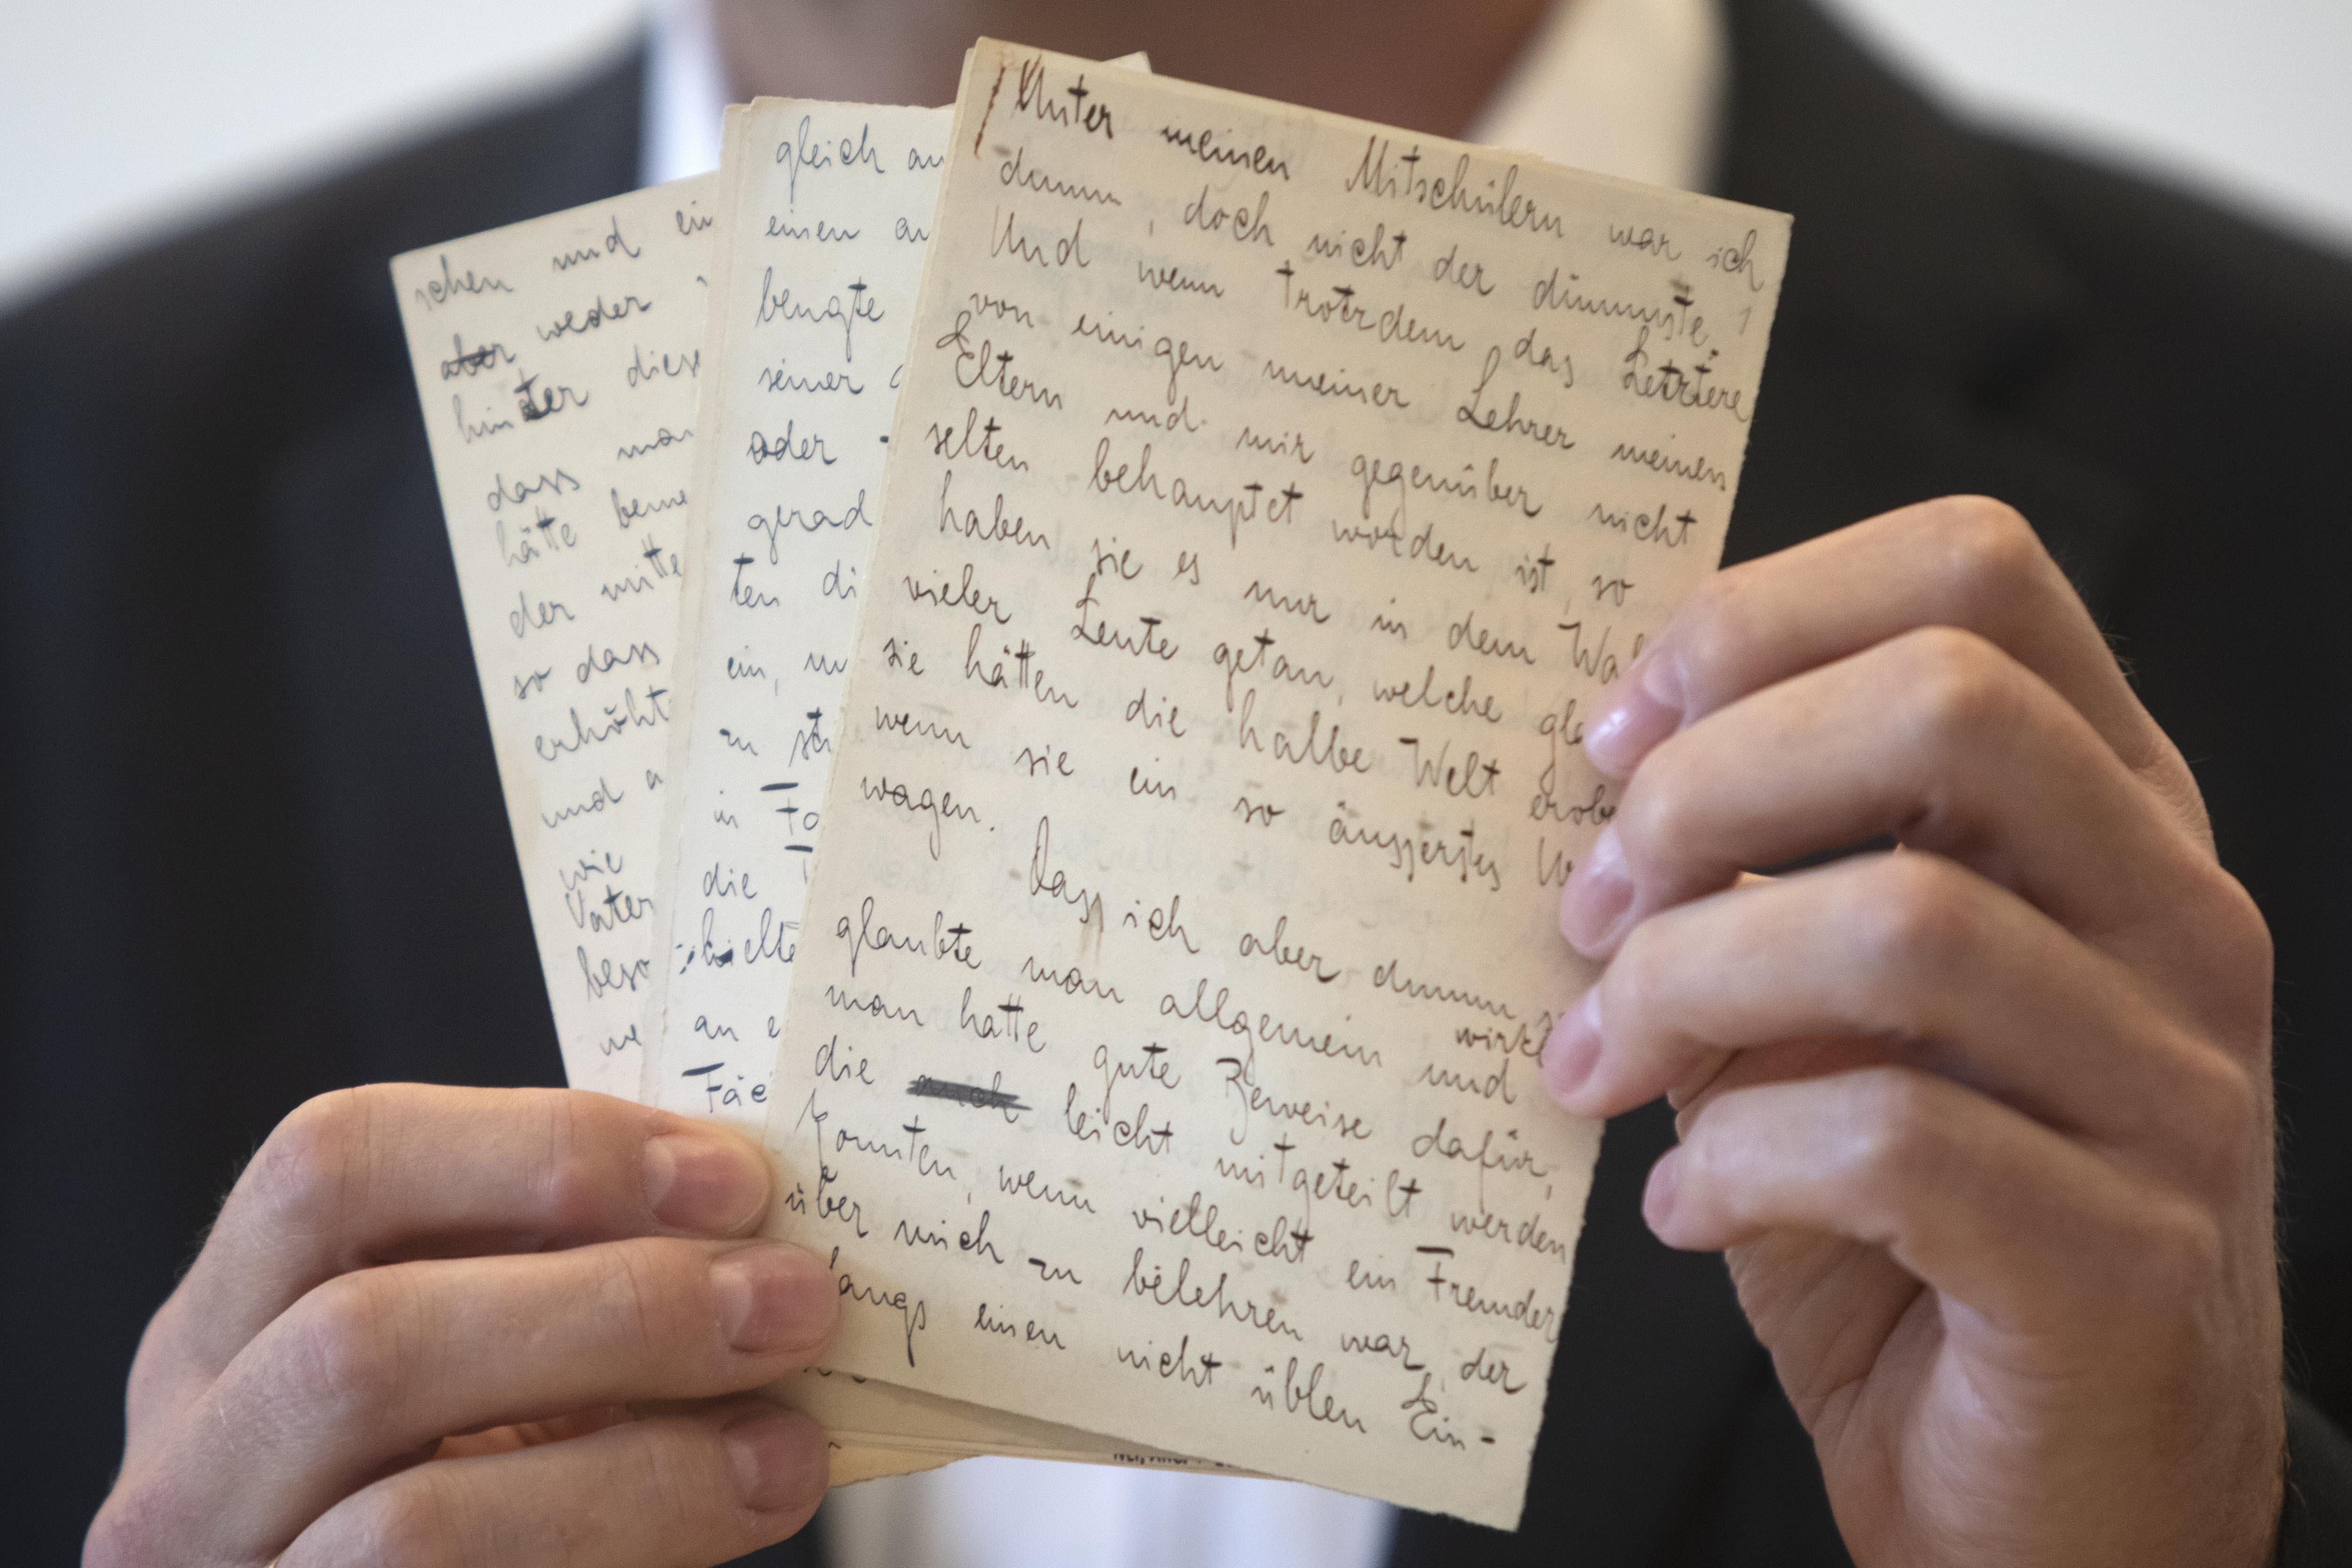 Unter meinen Mitschülern war ich
dumm, doch nicht der dümmste.
Und wenn trotzdem das Letztere
von einigen meiner Lehrer meinen
Eltern und mir gegenüber nicht
selten behauptet worden ist, so
haben sie es nur in dem Wa
vieler Leute getan, welche gla
sie hätten die halbe Welt erobe
wenn sie ein so äusserstes U
wagen.
Dass ich aber dumm s
glaubte man allgemein und wirkl
man hatte gute Beweise dafür,
die auch leicht mitgeteilt werden
konnten, wenn vielleicht ein Fremder
über mich zu belehren war, der
fangs einen nicht üblen Ein-
gleich an
einen an
beugte
seiner
oder -
gerad
ten di
ein, un
zu
in
die
hielte
an e
Fäc
schen und ein
aber weder
hinter diese
dass man
hätte beme
der mitte
so dass
erhöht
und a
wie
Vater
beso
we